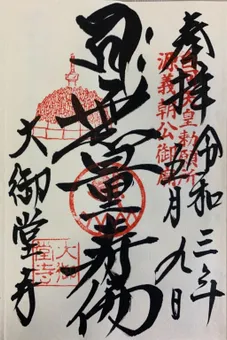 奉拝
令和三年
五月九日
天皇勅願所
源義朝公御廟
無量寿佛
大御堂寺
大御堂寺